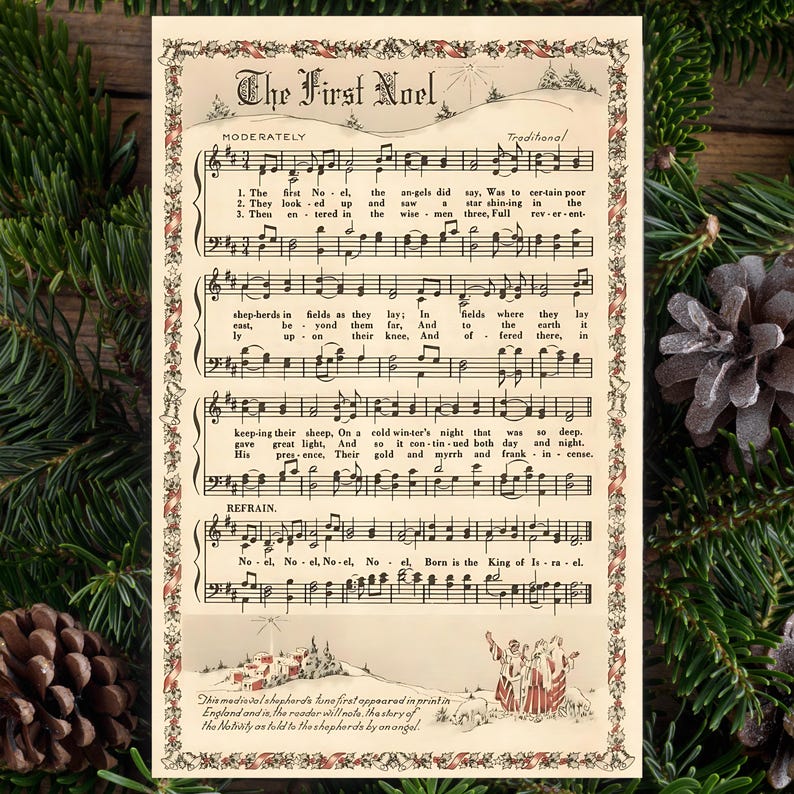 The First Noel
MODERATELY
Traditional
1. The first No - el, the an-gels did say, Was to cer-tain poor
2. They look - ed up and saw a star shin-ing in the
3. Then en - tered in the wise - men three, Full rev - er - ent-
shep-herds in fields as they lay; In fields where they lay
east, be - yond them far, And to the earth it
ly up - on their knee, And of - fered there, in
keep-ing their sheep, On a cold win-ter's night that was so deep.
gave great light, And so it con-tin-ued both day and night.
His pres-ence, Their gold and myrrh and frank - in - cense.
REFRAIN.
No-el, No-el, No-el, No-el, Born is the King of Is-ra-el.
This medieval shepherds tune first appeared in print in
England and is, the reader will note, the story of
the Nativity as told to the shepherds by an angel.